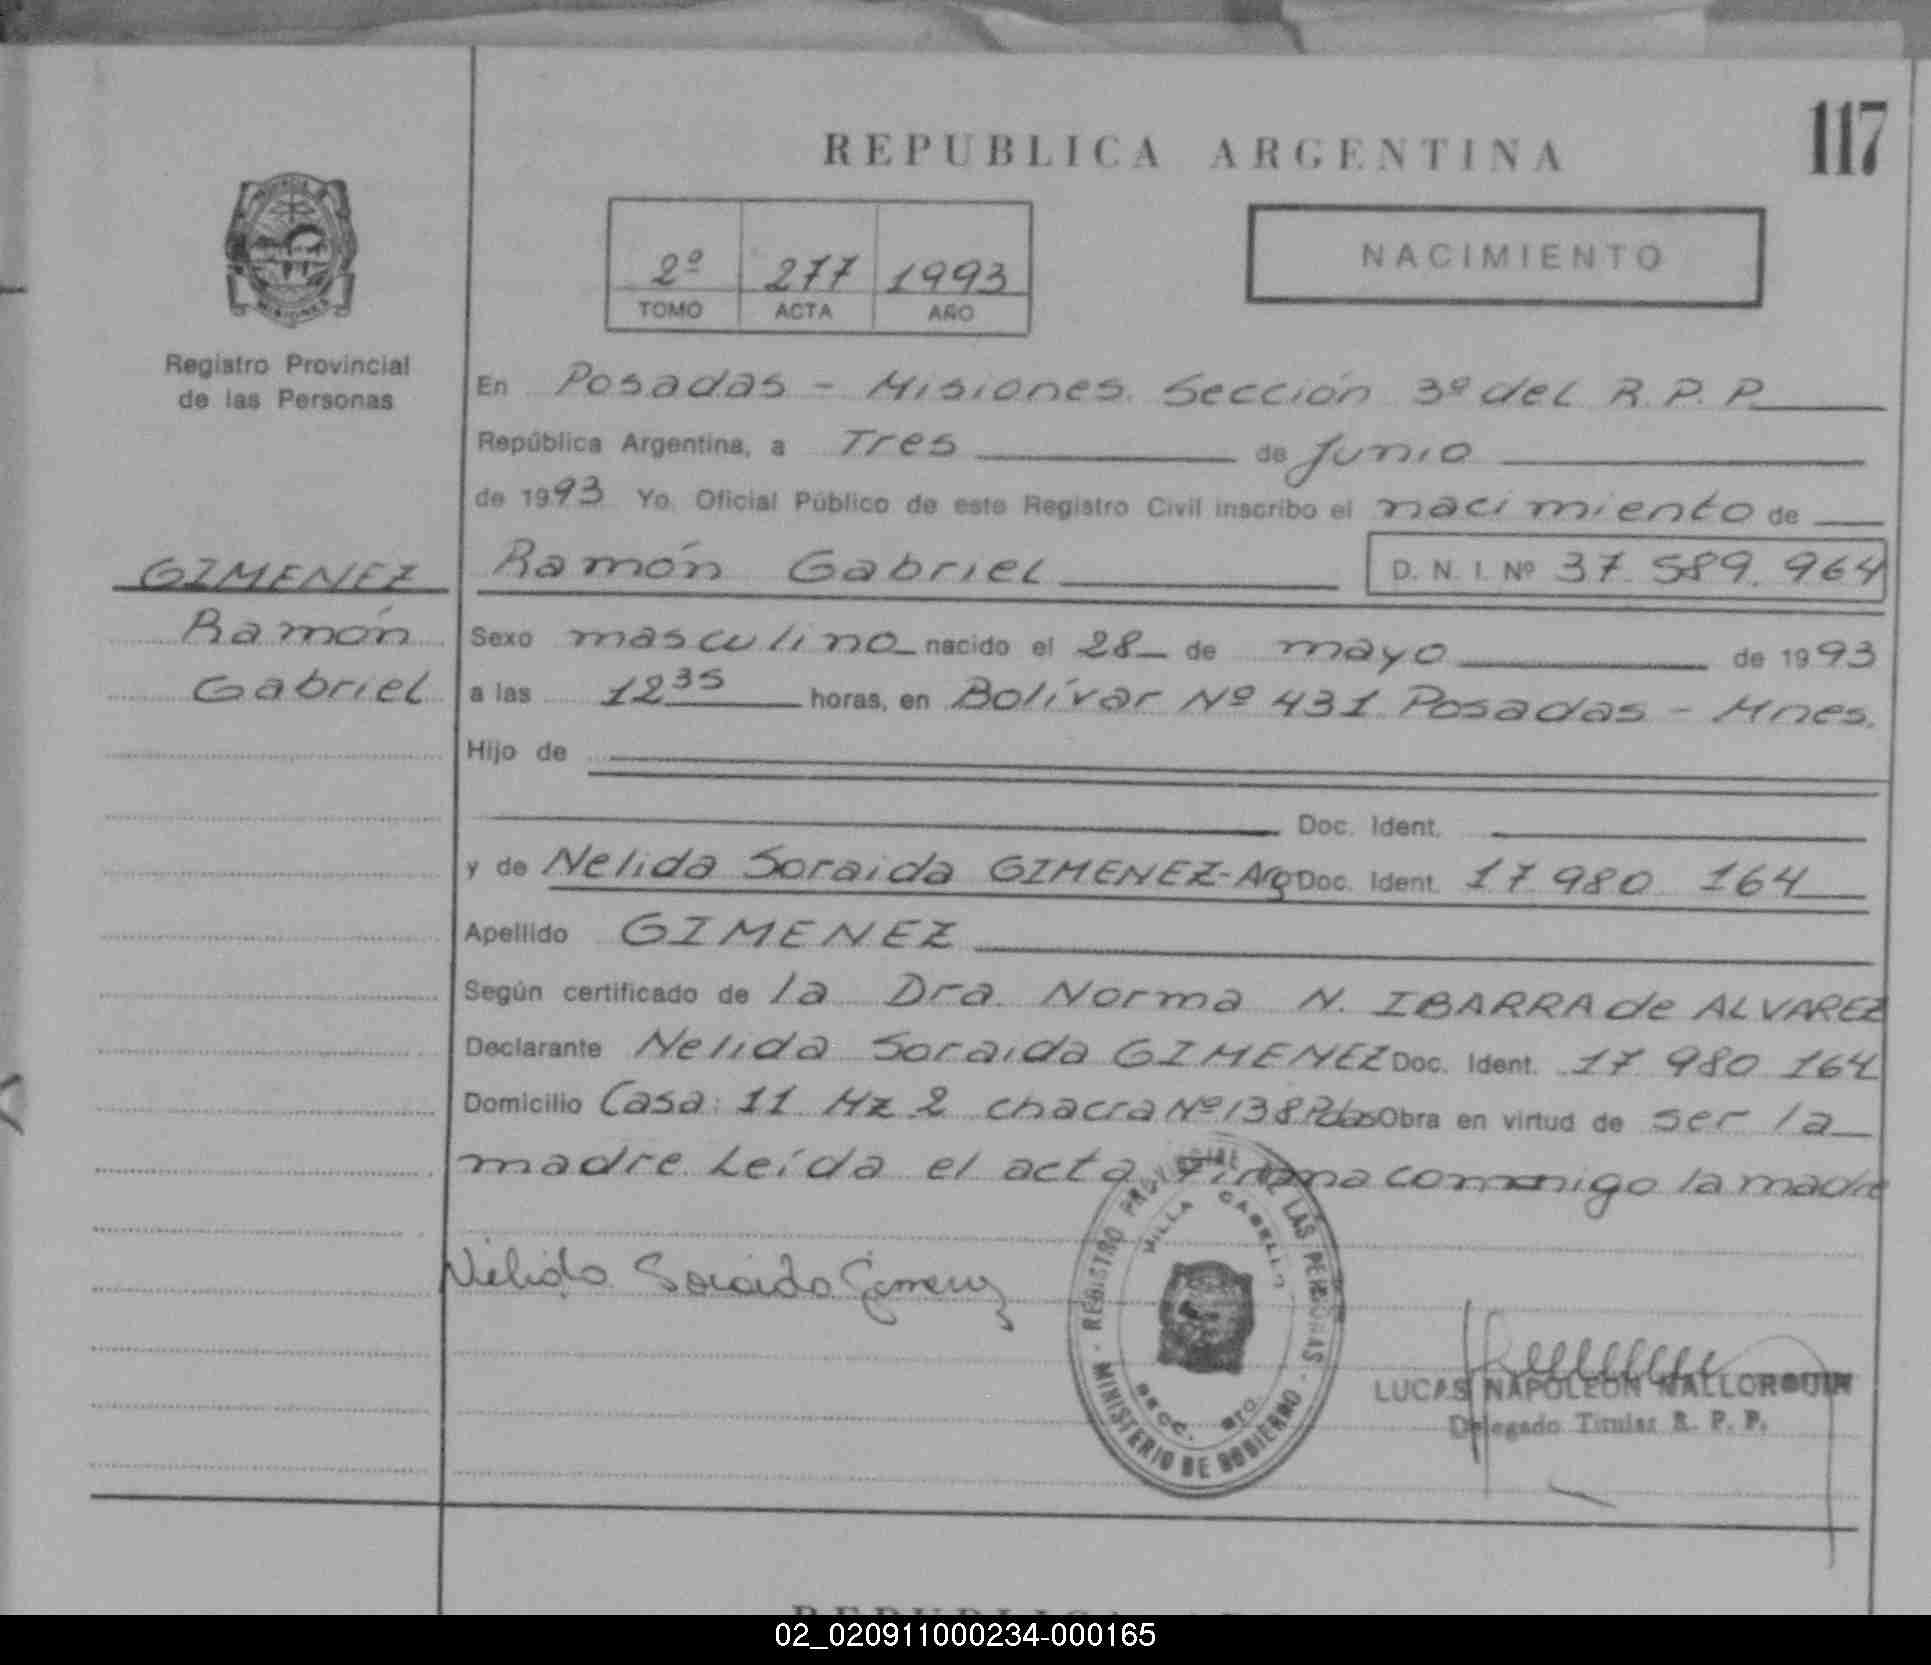 117
REPUBLICA ARGENTINA
2º 277 1993
TOMO ACTA AÑO
NACIMIENTO
MISIONES
Registro Provincial
de las Personas
En Posadas - Misiones. Sección 3º del R.P.P.
República Argentina, a Tres de Junio
de 1993 Yo, Oficial Público de este Registro Civil inscribo el nacimiento de
GIMENEZ Ramón Gabriel D. N. I. Nº 37.589.964
Ramón Sexo masculino nacido el 28 de mayo de 1993
Gabriel a las 12 35 horas, en Bolívar Nº 431 Posadas - Mnes.
Hijo de
Doc. Ident.
y de Nelida Soraida GIMENEZ-Arg Doc. Ident. 17 980 164
Apellido GIMENEZ
Según certificado de la Dra. Norma N. IBARRA de ALVAREZ
Declarante Nelida Soraida GIMENEZ Doc. Ident. 17 980 164
Domicilio Casa: 11 Mz 2 chacra Nº 138 Pdas Obra en virtud de ser la
madre Leída el acta Firma conmigo la madre
Nélida Soraida Gimenez
REGISTRO PROVINCIAL DE LAS PERSONAS
MINISTERIO DE GOBIERNO
VILLA CABELLO
SECC. 3ro.
LUCAS NAPOLEON MALLORQUIN
Delegado Titular R. P. P.
02_020911000234-000165